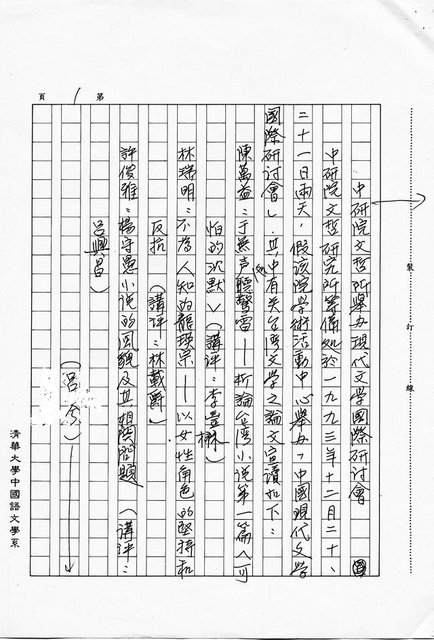 第1頁
裝訂線
中研院文哲所舉办現代文學國際研讨會
中研院文哲研究所筹備处於一九九三年十二月二十、
二十一日兩天，假該院學術活動中心舉办「中國現代文學
國際研讨會」，其中有关台湾文學之論文宣讀如下：
陳萬益：于無声處聽驚雷——析論台湾小说第一篇〈可
怕的沉默〉（講評：李豐楙）
林瑞明：不為人知的龍瑛宗——以女性角色的堅持和
反抗（講評：林載爵）
許俊雅：楊守愚小说的風貌及其相関問題（講評：
呂興昌）
（呂 ）
清華大學中國語文學系